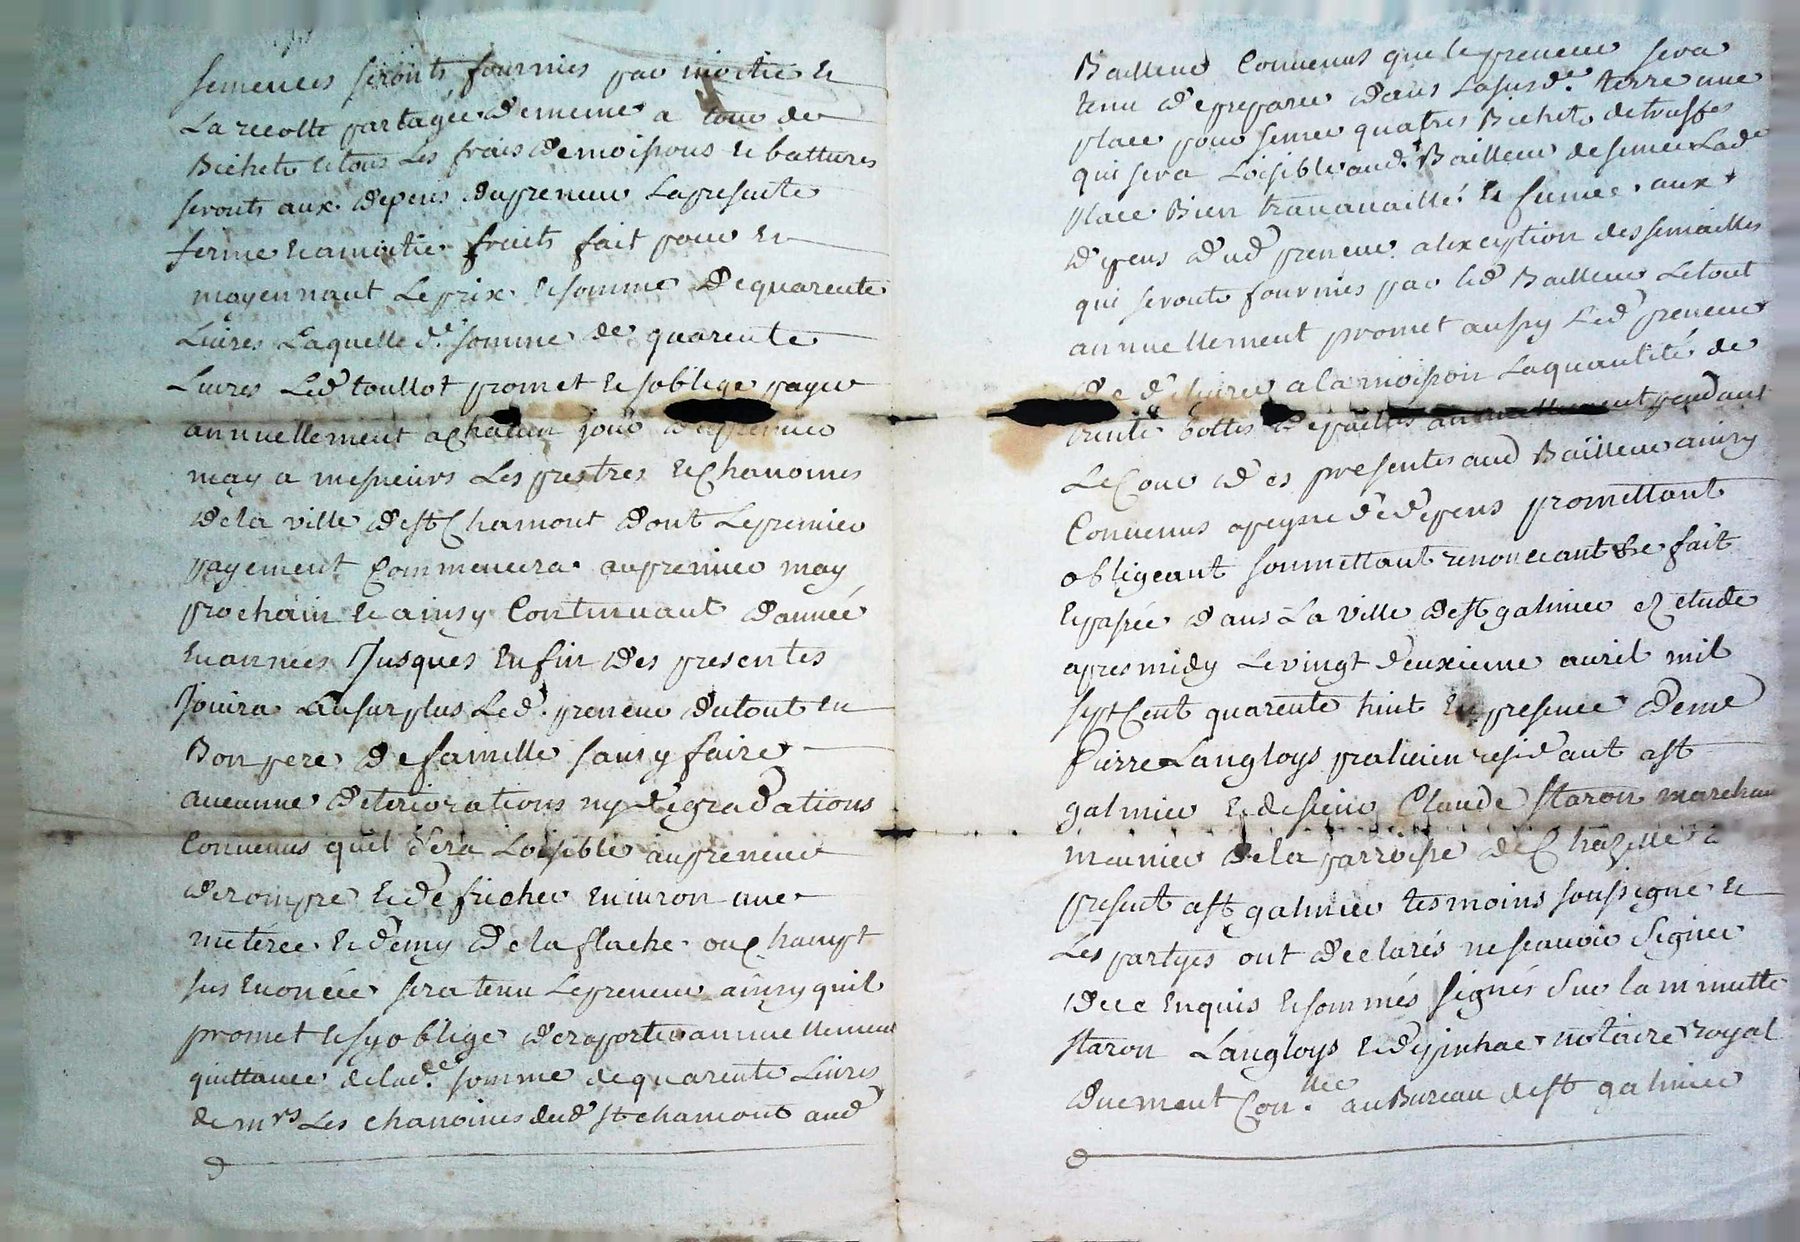 semences seronts fournies par moitié et
La recolte partagée de meme a tour de
Bichet et tous Les frais de moissons et battures
seronts aux depens du preneur La presente
ferme et a moitié fruits fait pour et
moyennant Le prix et somme de quarente
Livres Laquelle d.e somme de quarente
Livres Led toullot promet et soblige payer
annuellement a chacun jour du premier
may a messieurs Les prestres et chanoines
de la ville de st Chamont dont Le premier
payement Commencera au premier may
prochain et ainsy Continuant d'année
en années Jusques en fin des presentes
Jouira au surplus Led. preneur du tout en
Bon pere de famille sans y faire
aucunne deteriorations ny degradations
Convenus quil sera Loisible au preneur
de rompre et defricher environ une
meterée et demy de la flache ou champt
sus enoncée sera tenu Le preneur ainsy quil
promet et sy oblige de raporter annuellement
quittance de lad.e somme de quarente Livres
de mrs Les chanoines dud st chamont aud
Bailleur Convenus que le preneur sera
tenu de preparer dans La susd.e terre une
place pour semer quatres Bichets de truffes
qui sera Loisible aud. Bailleur de semer Lad.e
place Bien travavaillé et fumée aux
depens dud preneur a lexception des semailles
qui seronts fournies par led Bailleur Le tout
annuellement promet aussy Led preneur
de delivrer a la moisson La quantité de
trente bottes de pailles annuellement pendant
Le Cour des presentes aud Bailleur ainsy
Convenus a peyne de depens promettant
obligeant soumettant renonceant &c fait
et passée dans La ville de st galmier et etude
apres midy Le vingt deuxieme avril mil
sept Cent quarente huit en presence de me
Pierre Langloys praticien residant a st
galmier et de sieur Claude staron marchan
meunier de la parroisse de Chazelle a
present a st galmier tesmoins soussigné et
Les partyes ont declarés ne scavoir signer
de ce enquis et sommés signés sur la minutte
staron Langloys et despinhac notaire royal
duement Con.llée au Bureau de st galmier